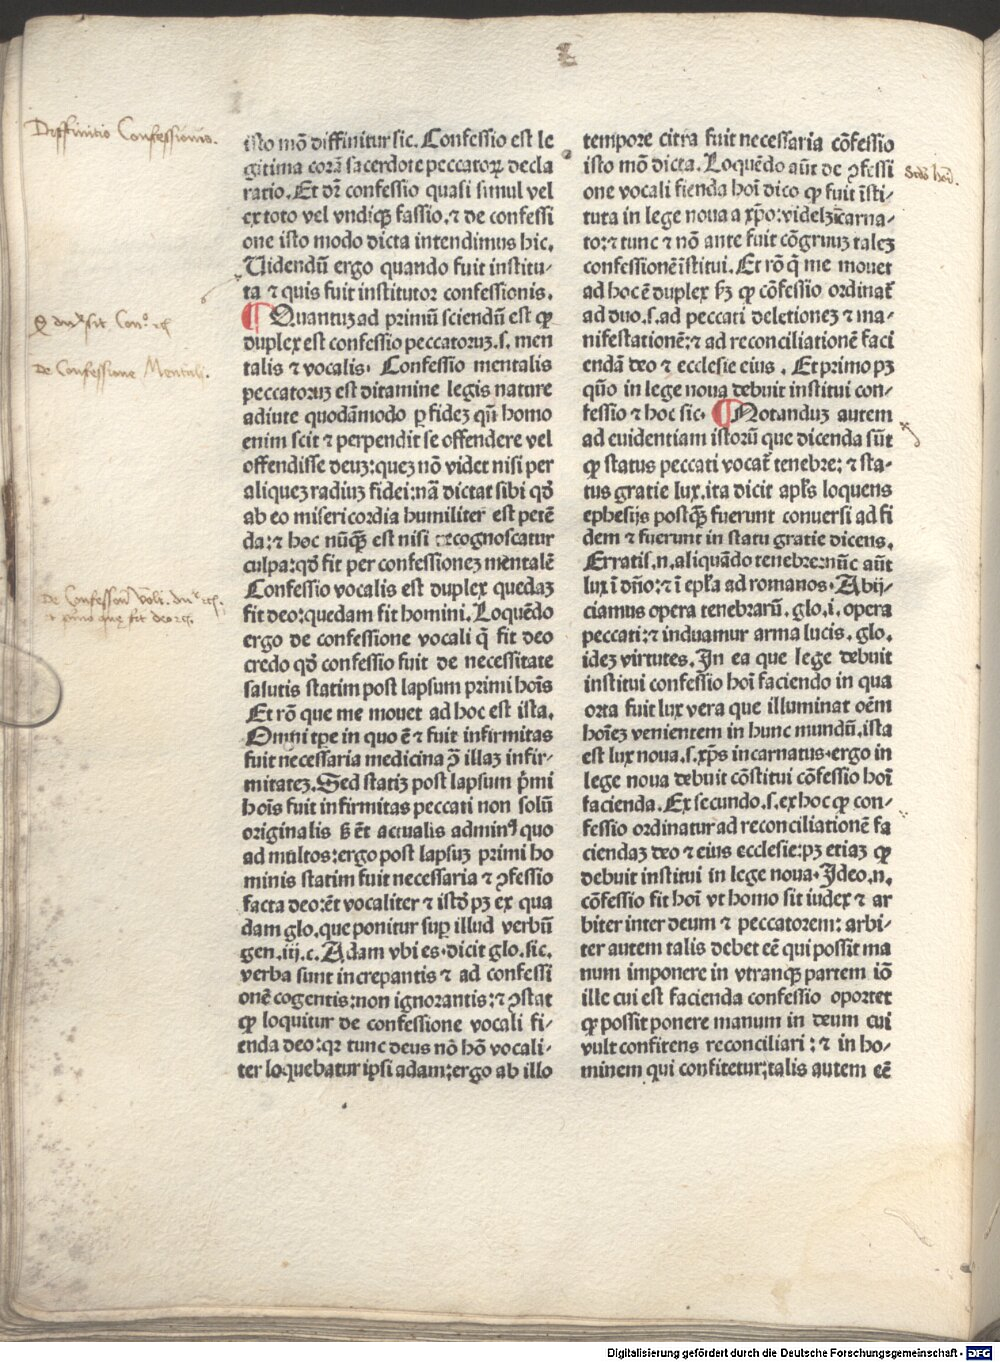 Deffinitio Confessionis.
isto mõ diffinitur sic. Confessio est le
gitima corã sacerdote peccatoꝝ decla
ratio. Et dr̃ confessio quasi simul vel
ex toto vel vndiqꝫ fassio. ⁊ de confessi
one isto modo dicta intendimus hic.
Uidendũ ergo quando fuit institu-
ta ⁊ quis fuit institutor confessionis.
¶ Quantuꝫ ad primũ sciendũ est ꝙ
duplex est confessio peccatoruꝫ.s. men
talis ⁊ vocalis. Confessio mentalis
peccatoruꝫ est ditamine legis nature
adiute quodãmodo ꝑ fideꝫ qũ homo
enim scit ⁊ perpendit se offendere vel
offendisse deuꝫ:queꝫ nõ videt nisi per
aliqueꝫ radiuꝫ fidei:nã dictat sibi qđ
ab eo misericordia humiliter est petẽ
da:⁊ hoc nũqꝫ est nisi recognoscatur
culpa:qđ fit per confessioneꝫ mentalẽ
Confessio vocalis est duplex quedaꝫ
fit deo:quedam fit homini. Loquẽdo
ergo de confessione vocali q̃ fit deo
credo qđ confessio fuit de necessitate
salutis statim post lapsum primi hoĩs
Et rõ que me mouet ad hoc est ista.
Omni tꝑe in quo ẽ ⁊ fuit infirmitas
fuit necessaria medicina ꝯ̃ illaꝫ infir-
mitateꝫ. Sed statiꝫ post lapsum pͥmi
hoĩs fuit infirmitas peccati non solũ
originalis ẞ ẽt actualis adminꝰ quo
ad multos:ergo post lapsuꝫ primi ho
minis statim fuit necessaria ⁊ ꝯfessio
facta deo:ẽt vocaliter ⁊ istđ pꝫ ex qua
dam glo.que ponitur suꝑ illud verbũ
gen.iij.c. Adam vbi es.dicit glo.sic.
verba sunt increpantis ⁊ ad confessi
onẽ cogentis:non ignorantis:⁊ ꝯstat
ꝙ loquitur de confessione vocali fi-
enda deo:qꝛ tunc deus nõ hõ vocali-
ter loquebatur ipsi adam:ergo ab illo
De Confessione Mentali.
tempore citra fuit necessaria cõfessio
isto mõ dicta. Loquẽdo aũt de ꝯfessi
one vocali fienda hoĩ dico ꝙ fuit ĩsti-
tuta in lege noua a xp̃o:videlꝫ ĩcarna-
to:⁊ tunc ⁊ nõ ante fuit cõgruuꝫ taleꝫ
confessionẽ ĩstitui. Et rõ q̃ me mouet
ad hoc ẽ duplex ẞꝫ ꝙ cõfessio ordinat̃
ad duo.s.ad peccati deletioneꝫ ⁊ ma-
nifestationẽ:⁊ ad reconciliationẽ faci
endã deo ⁊ ecclesie eius. Et primo pꝫ
qũo in lege noua debuit institui con-
fessio ⁊ hoc sic. ¶ Notanduꝫ autem
ad euidentiam istorũ que dicenda sũt
ꝙ status peccati vocat̃ tenebre:⁊ sta-
tus gratie lux.ita dicit apl̃s loquens
ephesijs postqꝫ̃ fuerunt conuersi ad fi
dem ⁊ fuerunt in statu gratie dicens.
Erratis.n.aliquãdo tenebre:nũc aũt
lux ĩ dño:⁊ ĩ epl̃a ad romanos. Abij-
ciamus opera tenebrarũ.glo.i.opera
peccati:⁊ induamur arma lucis.glo.
ideꝫ virtutes. In ea que lege debuit
institui confessio hoĩ faciendo in qua
orta fuit lux vera que illuminat oẽm
hoĩeꝫ venientem in hunc mundũ.ista
est lux noua.s.xp̃s incarnatus.ergo in
lege noua debuit cõstitui cõfessio hoĩ
facienda. Ex secundo.s.ex hoc ꝙ con-
fessio ordinatur ad reconciliationẽ fa
ciendaꝫ deo ⁊ eius ecclesie:pꝫ etiaꝫ ꝙ
debuit institui in lege noua. Ideo.n.
cõfessio fit hoĩ vt homo sit iudex ⁊ ar
biter inter deum ⁊ peccatorem: arbi-
ter autem talis debet eẽ qui possit ma
num imponere in vtranqꝫ partem iõ
ille cui est facienda confessio oportet
ꝙ possit ponere manum in deum cui
vult confitens reconciliari:⁊ in ho-
minem qui confitetur:talis autem eẽ
Digitalisierung gefördert durch die Deutsche Forschungsgemeinschaft - DFG